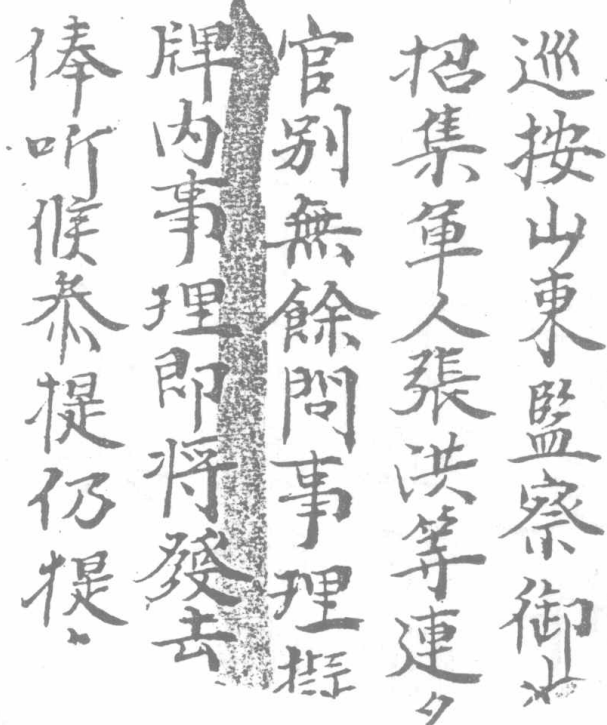 巡按山東監察御
招集軍人張洪等連
官别無餘問事理擬
牌内事理即将發去
俸听候叅提仍提